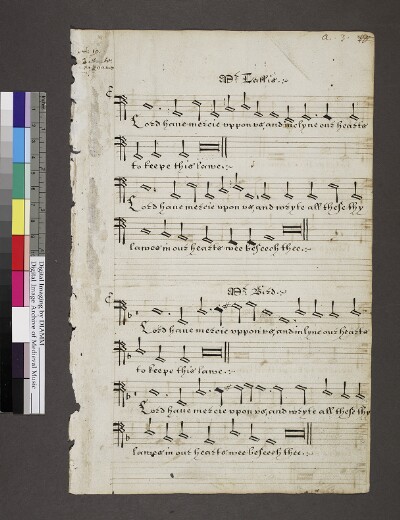 a. 3.
Mr Tallis.
Lord haue mercie vppon vs, and inclyne our hearts
to keepe this lawe.
Lord haue mercie vpon vs, and wryte all these thy
lawes in our hearts wee beseech thee.
Mr Bird.
Lord haue mercie vppon vs, and inclyne our hearts
to keepe this lawe.
Lord haue mercie vpon vs, and wryte all these thy
lawes in our hearts wee beseech thee.
Digital Imaging by DIAMM
Digital Image Archive of Medieval Music